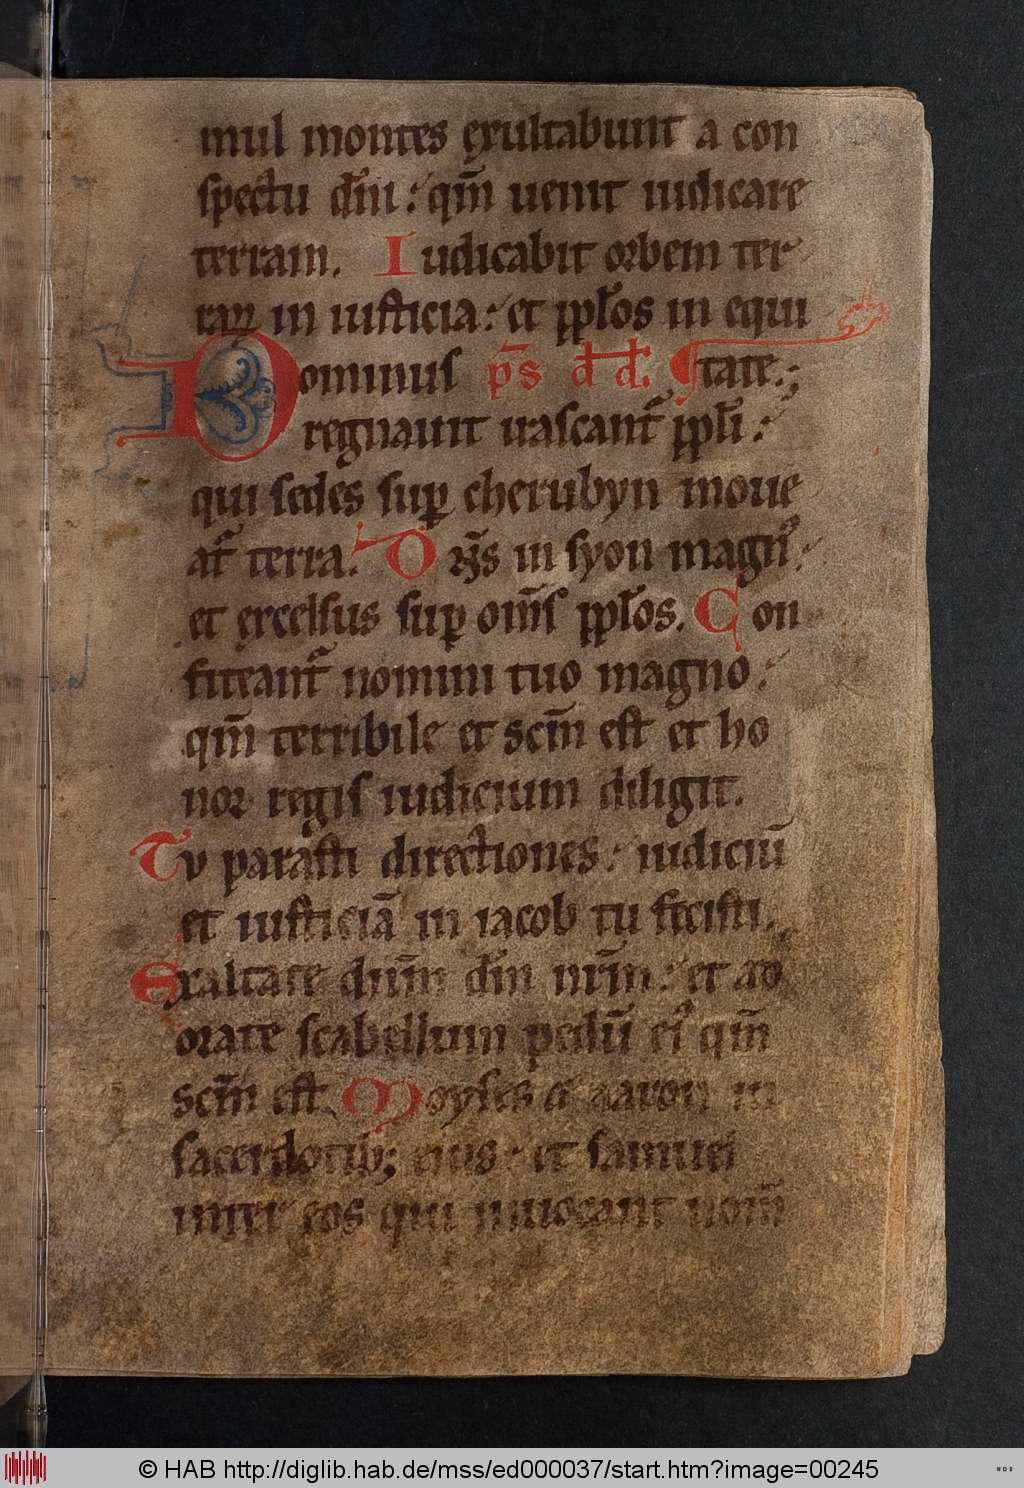 mul montes exultabunt a con
spectu dñi: qm̄ uenit iudicare
terram. Iudicabit orbem ter
raꝝ in iusticia: et ppl̓os in equi
Dominus p̄s dd. tate.;
regnauit irascant᷑ ppl̓i:
qui sedes suꝑ cherubyn moue
at᷑ terra. Dn̄s in syon magn᷒:
et excelsus suꝑ om̄s ppl̓os. Con
fiteant᷑ nomini tuo magno:
qm̄ terribile et scm̄ est et ho
nor regis iudicium diligit.
Tv parasti directiones: iudiciū
et iusticiā in iacob tu fecisti.
Exaltate dnm̄ dm̄ nr̄m: et ad
orate scabellum pedū ei᷒ qm̄
scm̄ est. Moyses et aaron in
sacerdotib; eius: et samuel
inter eos qui inuocant nom̄
© HAB http://diglib.hab.de/mss/ed000037/start.htm?image=00245